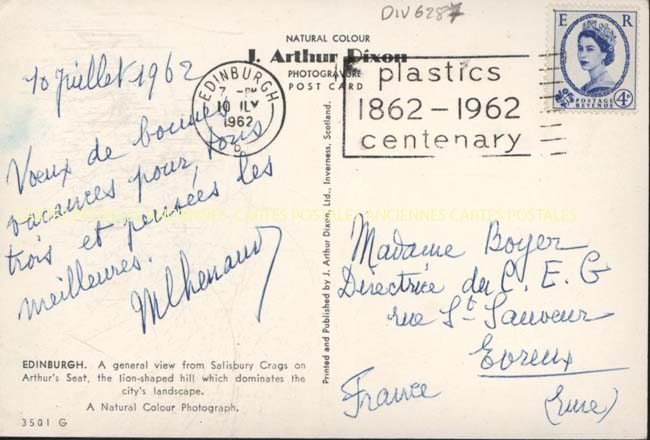 DIV6287
NATURAL COLOUR
J. Arthur Dixon
PHOTOGRAVURE
POST CARD
EDINBURGH
7 - PM
10 JLY
1962
plastics
1862-1962
centenary
E R
POSTAGE
REVENUE
4D
10 Juillet 1962
Voeux de bonnes
vacances pour tous
trois et pensées les
meilleures.
CARTES POSTALES ANCIENNES CARTES POSTALES ANCIENNES CARTES POSTALES
Printed and Published by J. Arthur Dixon, Ltd., Inverness, Scotland.
Madame Boyer
Directrice du C. E. G
rue St Sauveur
Evreux
France (Eure)
EDINBURGH. A general view from Salisbury Crags on
Arthur's Seat, the lion-shaped hill which dominates the
city's landscape.
A Natural Colour Photograph.
3501 G